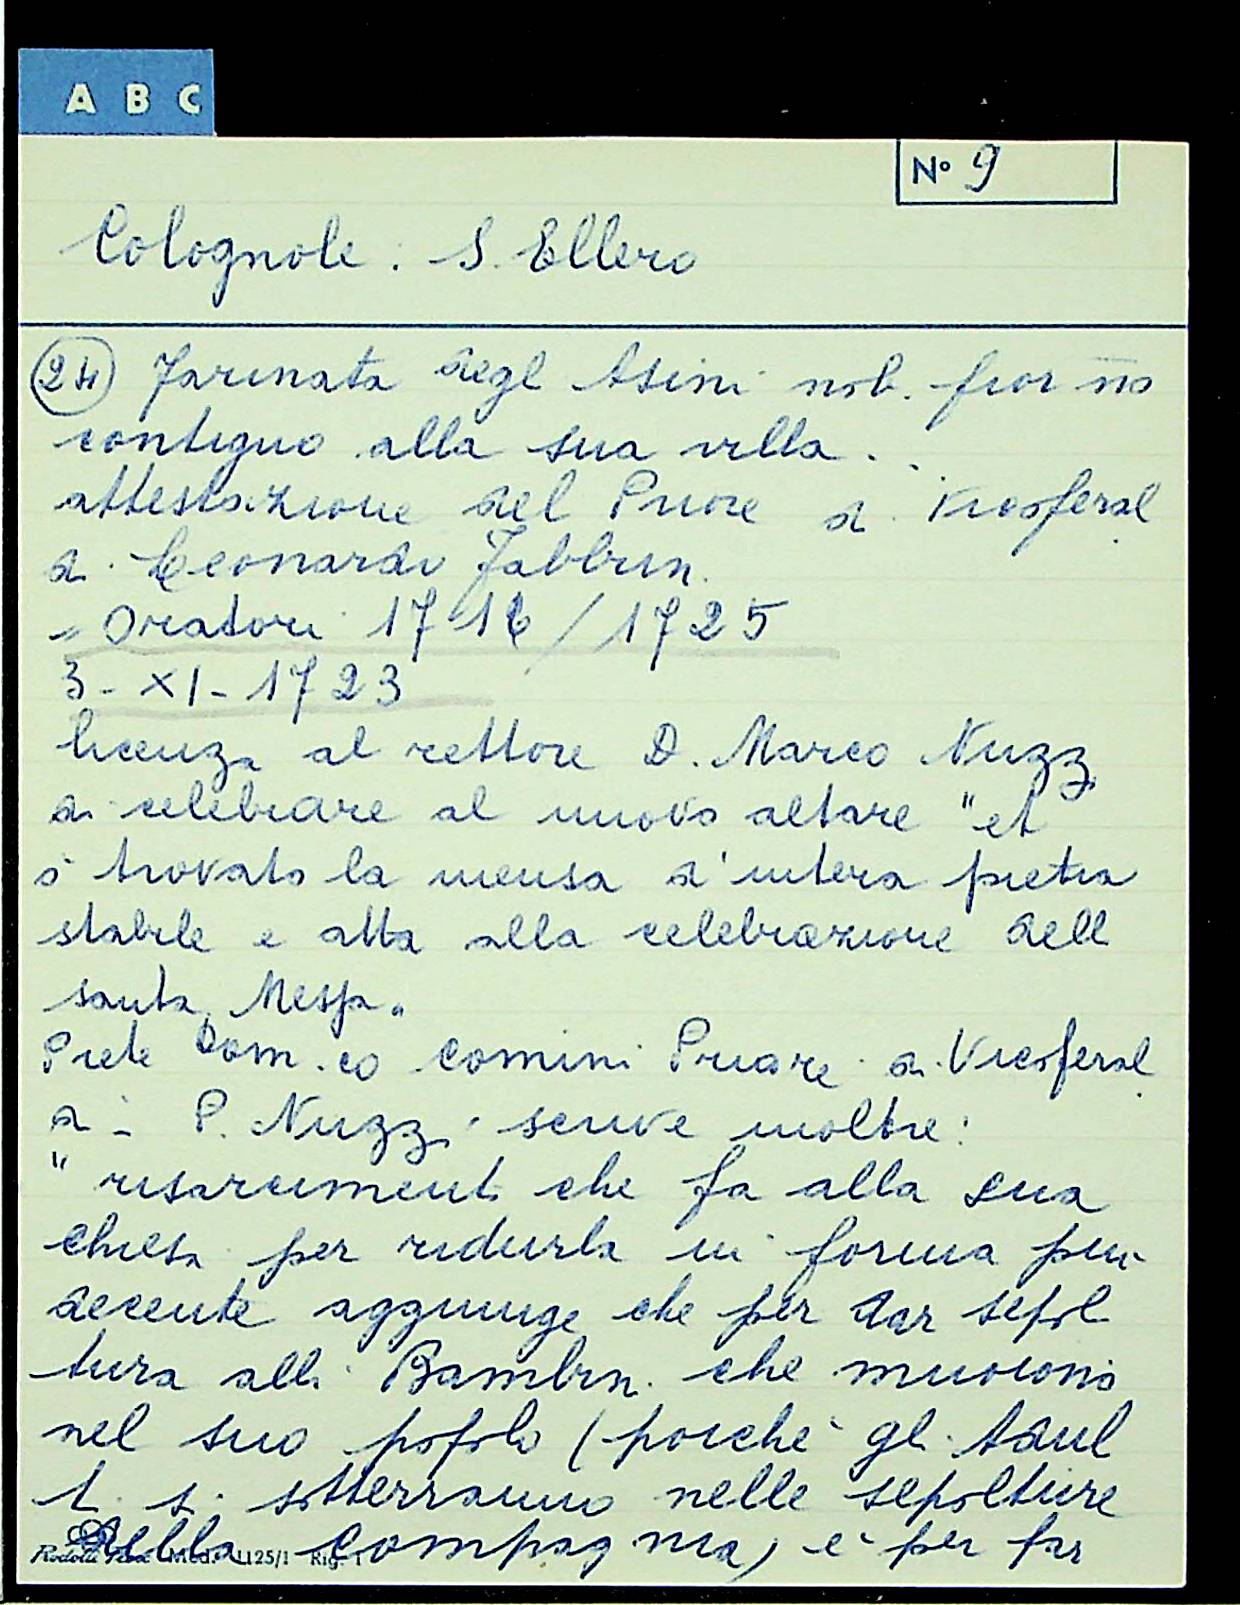 A B C
Nº 9
Colognole: S. Ellero
24 Farinata degl Asini nob. fior no
contiguo alla sua villa.
attestazione del Priore di Vicoferal
di Leonardo Fabbrin.
- Oratori 1716/1725
3-XI-1723
licenza al rettore D. Marco Nuzzi
di celebrare al nuovo altare "et
ò trovato la mensa d'intera pietra
stabile e atta alla celebrazione dell
santa Messa.
Prete Dom.co Comini Priore di Vicoferal
di - P. Nuzzi scrive inoltre:
"risarcimenti che fa alla sua
chiesa per ridurla in forma più
decente aggiunge che per dar sepol
tura alli Bambin. che muoiono
nel suo popolo (poiché gli Adul
ti si sotterranno nelle sepolture
della compagnia) e per far
Mod. 1125/1 Rig. 1